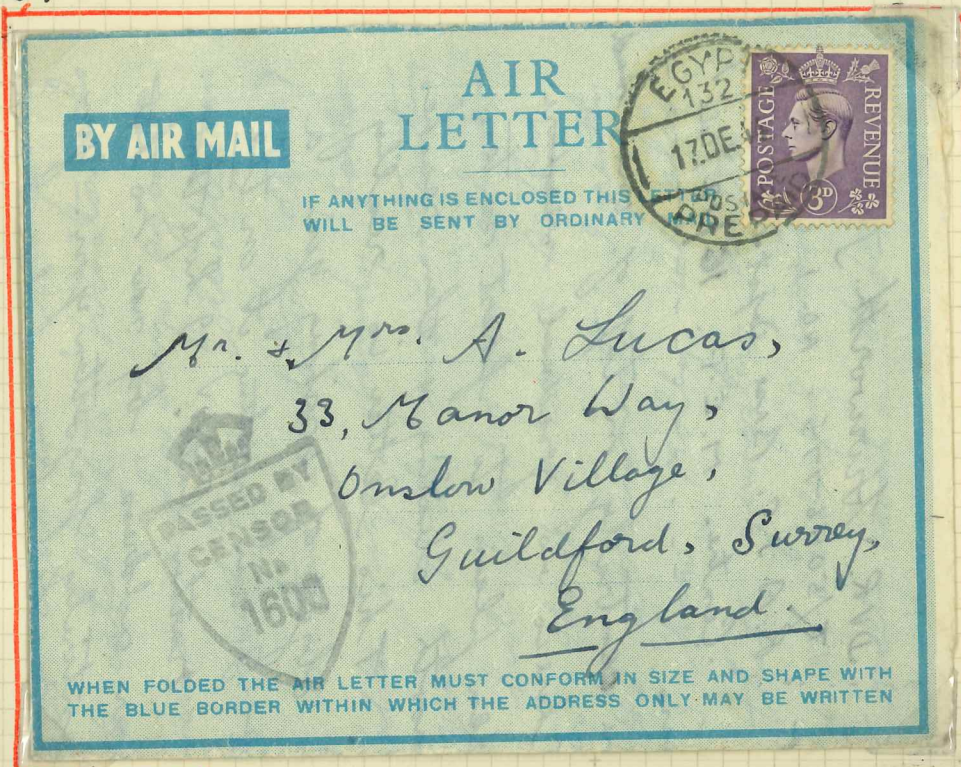 AIR
LETTER
BY AIR MAIL
IF ANYTHING IS ENCLOSED THIS LETTER
WILL BE SENT BY ORDINARY
EGYPT
132
17 DE
PREPAID
POSTAGE
REVENUE
3D
Mr. & Mrs. A. Lucas,
33, Manor Way,
Onslow Village,
Guildford, Surrey,
England.
PASSED BY
CENSOR
No
1600
WHEN FOLDED THE AIR LETTER MUST CONFORM IN SIZE AND SHAPE WITH
THE BLUE BORDER WITHIN WHICH THE ADDRESS ONLY MAY BE WRITTEN